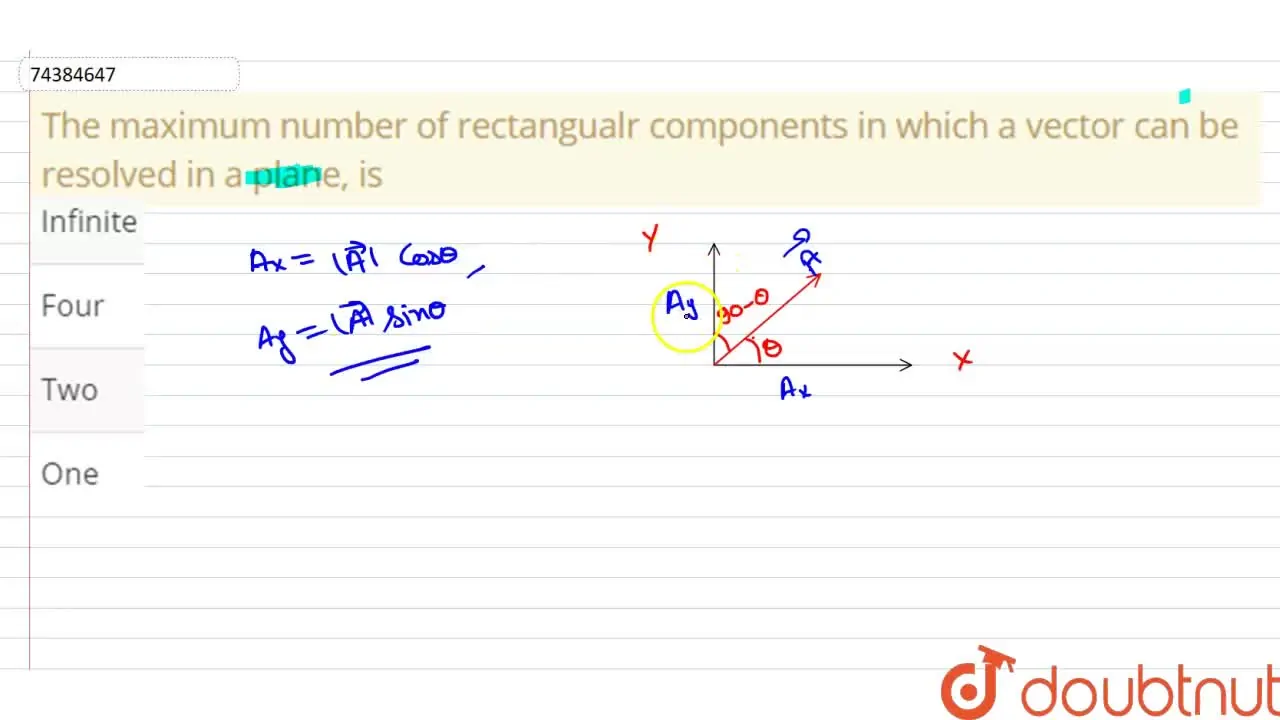 74384647
The maximum number of rectangualr components in which a vector can be
resolved in a plane, is
Infinite
Four
Two
One
Ax = |A⃗| Cosθ,
Ay = |A⃗| sinθ
Y
A⃗
Ay
90-θ
θ
X
Ax
doubtnut